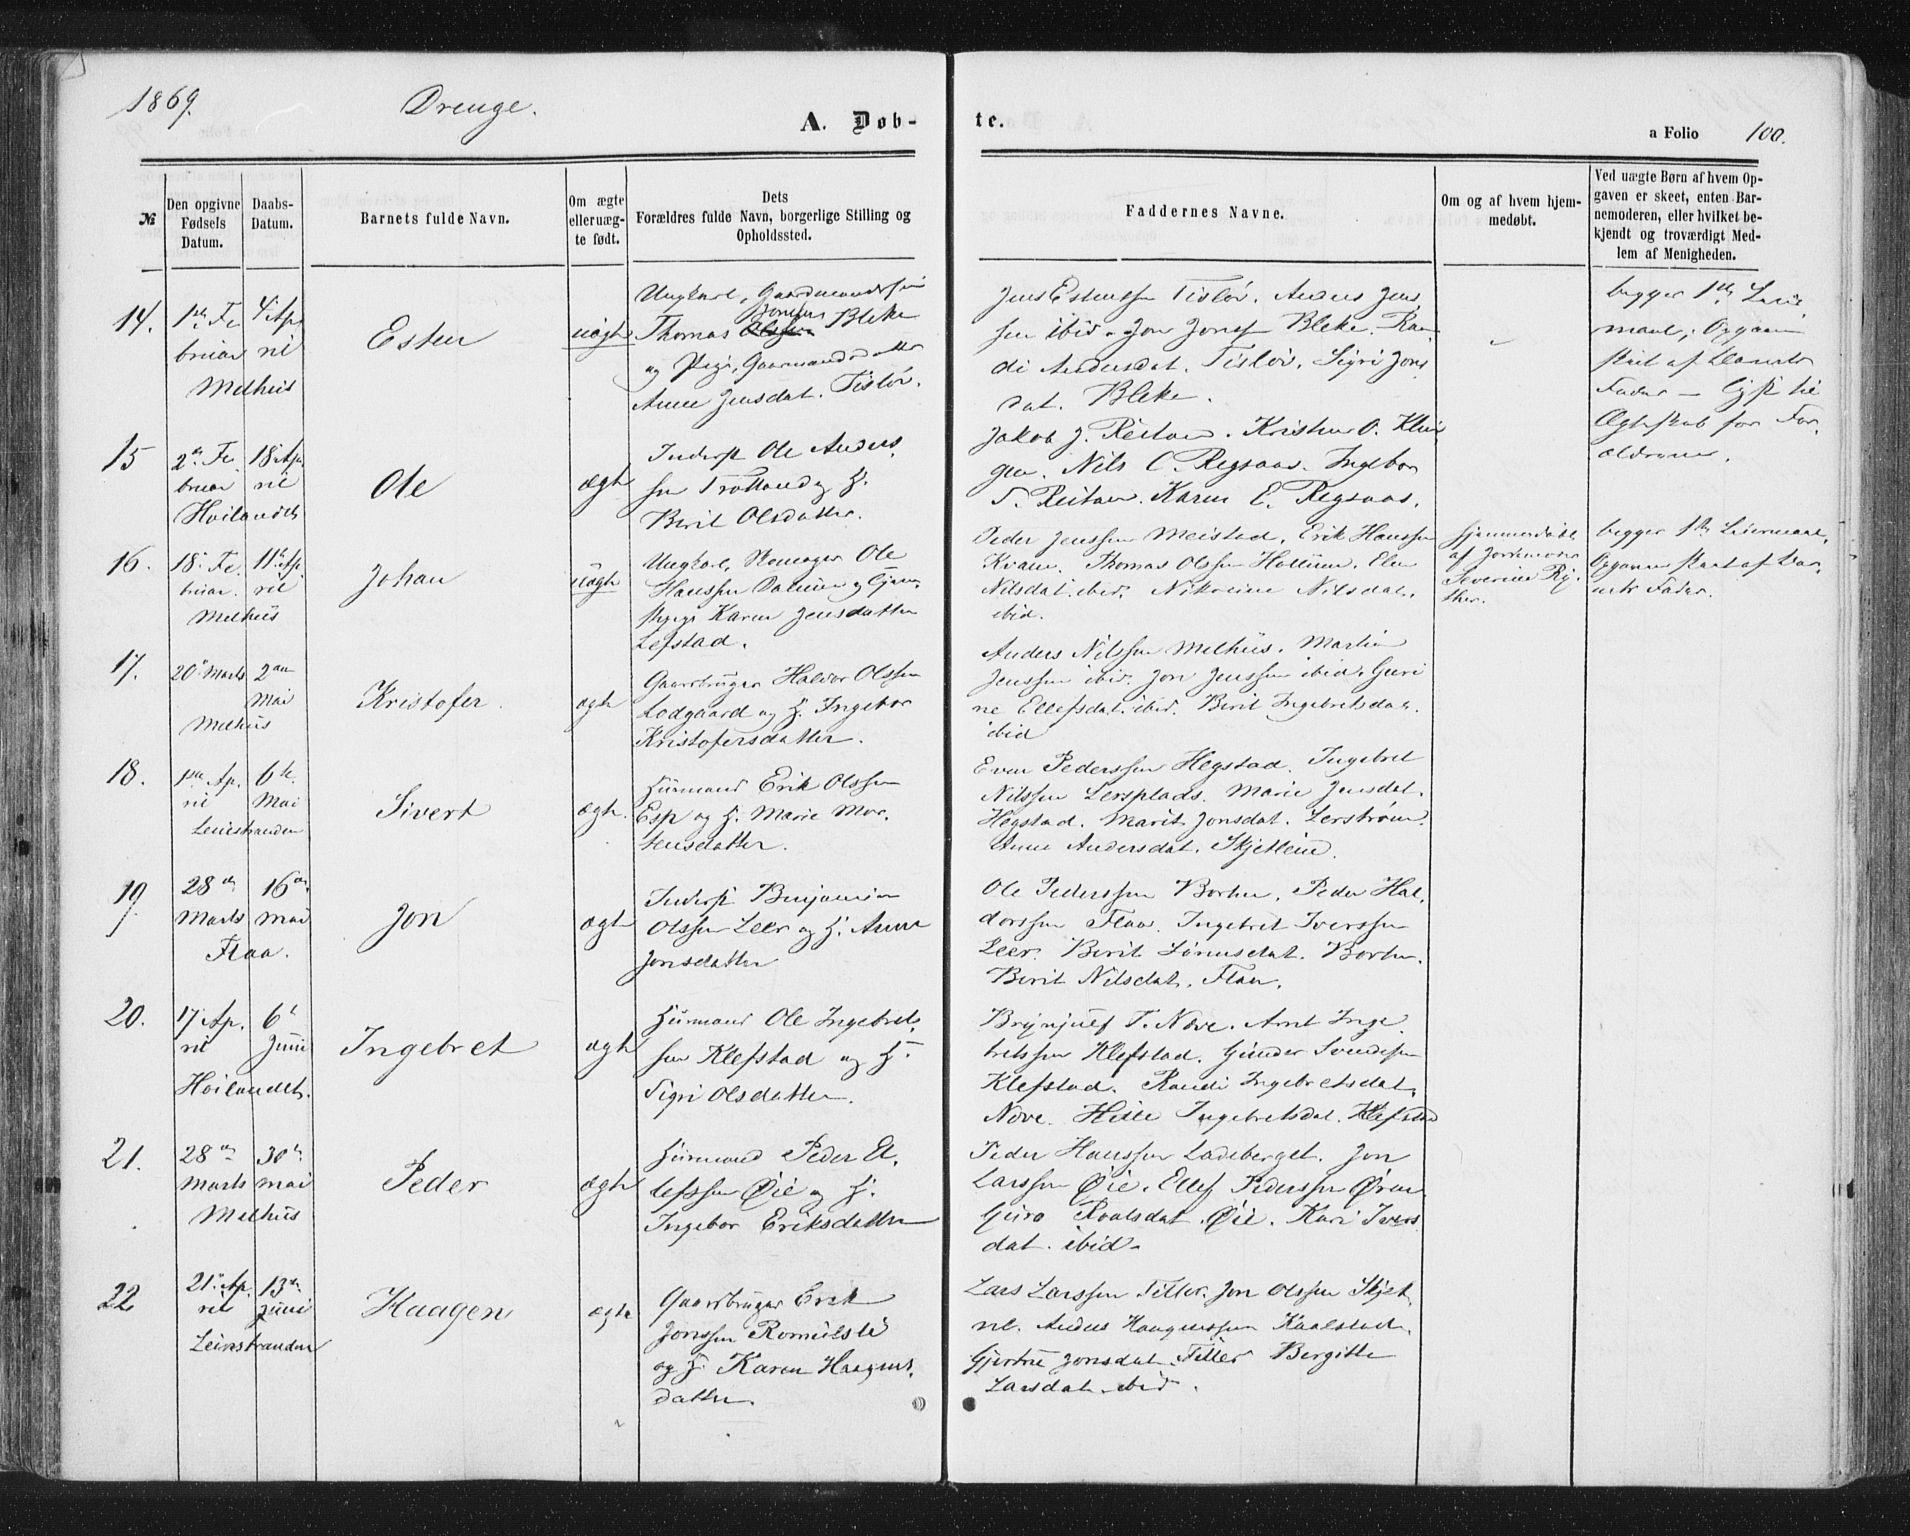 1869.
Drenge.
A. Døb-
te.
a Folio 100.
№
Den opgivne Fødsels Datum.
Daabs-Datum.
Barnets fulde Navn.
Om ægte eller uæg-te født.
Dets Forældres fulde Navn, borgerlige Stilling og Opholdssted.
Faddernes Navne.
Om og af hvem hjem-medøbt.
Ved uægte Børn af hvem Op-gaven er skeet, enten Bar-nemoderen, eller hvilket be-kjendt og troværdigt Med-lem af Menigheden.
14.
1ste Fe
bruar
4de Ap
ril
Melhus
Esten
uægte
Ungkarl, Gaardmandssøn
Jonsen
Thomas Olssen Bleke
og Pige, Gaarmandsdatter
Anne Jensdat. Tisløv.
Jens Estenssen Tisløv. Anders Jens
sen ibid. Jon Jonsen Bleke. Ran
di Andersdat. Tisløv. Sigri Jons
dat. Bleke.
begges 1ste Leier
maal; Opgaven
skeet af Barnets
Fader —
Ægteskab for For
ældrene.
15
2den Fe
bruar
18 Ap
ril
Høilandet
Ole
ægte
Inderst Ole Anders
sen Trøtland og H.
Berit Olsdatter.
Jakob J. Reitan. Kristen O. Klun
gen. Nils C. Regsaas. Ingebor
T. Reitan. Karen E. Regsaas.
16.
18. Fe
bruar.
11te Ap
ril
Melhus
Johan
uægte
Ungkarl, Skomager Ole
Hanssen Dalum og Gjen
stpige Karen Jensdatter
Lefstad.
Peder Jenssen Meistad. Erik Hanssen
Kvam. Thomas Olsen Hollum. Elen
Nilsdat. ibid. Nikoline Nilsdat.
ibid.
Hjemmedøbt
af Jordemoder
Severine Ry
ther.
begges 1ste Leiermaal,
Opgaven skeet af Bar
nets Fader.
17.
20de Marts
2den
Mai
Melhus
Kristofer.
ægte
Gaardbruger Haldor Olssen
Lodgaard og H. Ingebor
Kristofersdatter.
Anders Nilssen Melhus. Martin
Jenssen ibid. Jon Jenssen ibid. Guri
ne Ellefsdat. ibid. Berit Ingebretsdat.
ibid
18.
1ste Ap.
ril
6te
Mai
Leinstranden
Sivert
ægte.
Husmand Erik Olssen
Esp og H. Marie Mor
tensdatter.
Even Pederssen Hegstad. Ingebret
Nilssen Lersplads. Marie Jensdat.
Hegstad. Marit Jonsdat. Lerstrøm.
Anne Andersdat. Skjetlein.
19.
28de
Marts
16de
Mai
Flaa.
Jon
ægte
Inderst Benjamin
Olssen Leer og H. Anne
Jonsdatter
Ole Pederssen Borten. Peder Hal
dorssen Flaa. Ingebret Iverssen
Leer. Berit Lønusdat. Borten.
Berit Nilsdat. Flaa.
20.
17 Ap.
ril
6te
Juni
Høilandet.
Ingebret
ægte
Husmand Ole Ingebret
sen Klefstad og H.
Sigri Olsdatter.
Brynjulf T. Nove. Arnt Inge
bretssen Klefstad. Gunder Svendsen
Klefstad. Randi Ingebretsdat.
Nove. Ingebretsdat. Klefstad
21.
28de
Marts
30te
Mai
Melhus
Peder
ægte
Husmand Peder El
lefssen Øie og H.
Ingebor Eriksdatter
Peder Hanssen Ladeberget. Jon
Larssen Øie. Ellef Pederssen Øren
Guro Roalsdat. Øie. Kari Ivers
dat. ibid.
22
21de Ap
ril
13de
Juni
Leinstranden
Haagen
ægte
Gaardbruger Erik
Jonssen Romulsli
og H. Karen Haagens
datter.
Lars Larssen Tiller. Jon Olssen Skjet
ne. Anders Haagenssen Kaalstad.
Gjertrue Jonsdat. Tiller Bergitte
Larsdat. ibid.